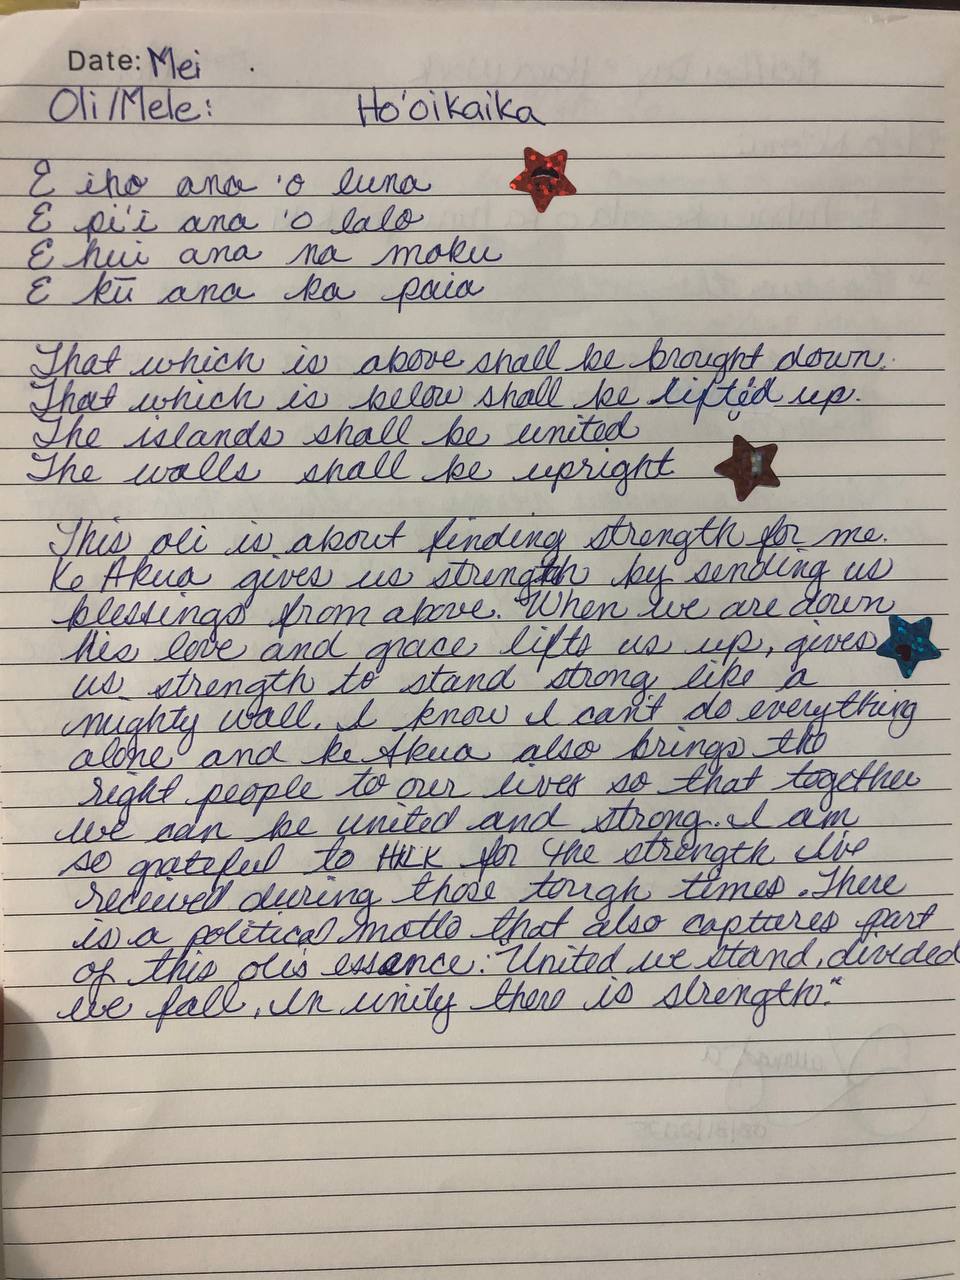 Date: Mei
Oli/Mele: Ho'oikaika
E iho ana 'o luna
E pi'i ana 'o lalo
E hui ana na moku
E kū ana ka paia
That which is above shall be brought down.
That which is below shall be lifted up.
The islands shall be united
The walls shall be upright
This oli is about finding strength for me.
Ke Akua gives us strength by sending us
blessings from above. When we are down
his love and grace lifts us up, gives
us strength to stand strong like a
mighty wall. I know I can't do everything
alone and ke Akua also brings the
right people to our lives so that together
we can be united and strong. I am
so grateful to HKK for the strength I've
received during those tough times. There
is a political motto that also captures part
of this olis essence: "United we stand, divided
we fall. In unity there is strength."